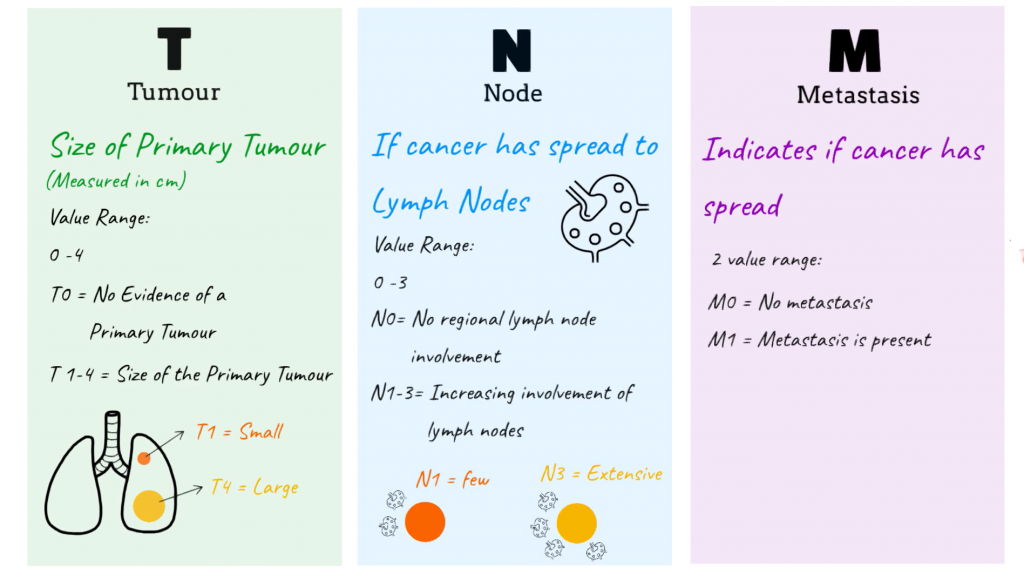 T
Tumour
Size of Primary Tumour
(Measured in cm)
Value Range:
0 -4
T0 = No Evidence of a
Primary Tumour
T 1-4 = Size of the Primary Tumour
T1 = Small
T4 = Large
N
Node
If cancer has spread to
Lymph Nodes
Value Range:
0 -3
N0= No regional lymph node
involvement
N1-3= Increasing involvement of
lymph nodes
N1 = few
N3 = Extensive
M
Metastasis
Indicates if cancer has
spread
2 value range:
M0 = No metastasis
M1 = Metastasis is present